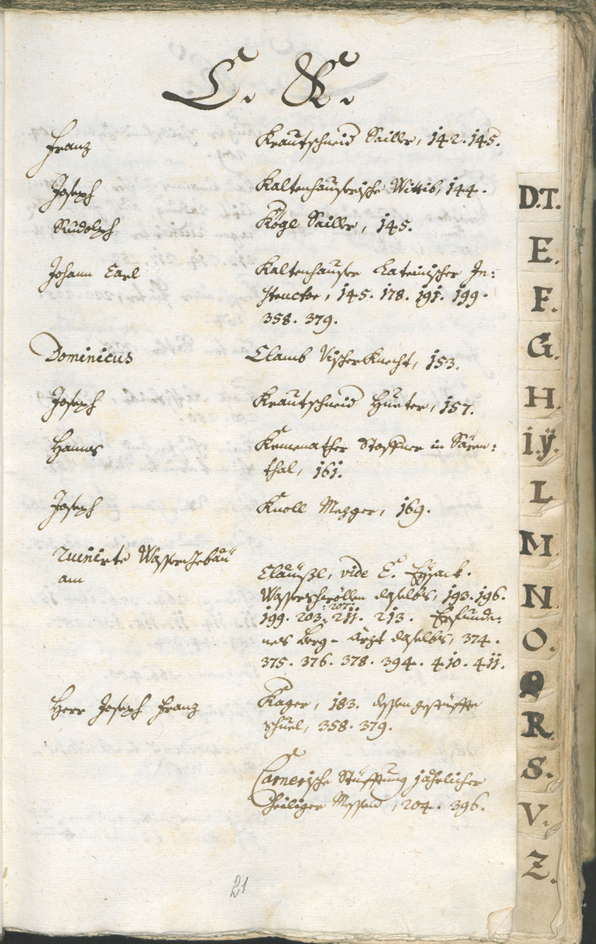 C. K.
Franz Krautschneid Sailler, 142. 145.
Joseph Kaltenhauserische Wittib, 144.
Rudolph Kögl Sailler, 145.
Johann Carl Kaltenhauser Lateinischer In:
structor, 145. 178. 191. 199.
358. 379.
Dominicus Clamb Vischerknecht, 153.
Joseph Krautschneid Hueter, 157.
Hanns Kemenather Stoffner in Sären:
thal, 161.
Joseph Knoll Mezger, 169.
Ruinirte Wassergebäu
am Clausl, vide E. Eysack.
Wasserschwöllen daselbs, 193. 196.
199. 203. 207. 211. 213. Erfunde:
nes Berg- daselbs, 374.
375. 376. 378. 394. 410. 411.
Herr Joseph Franz Kager, 183. dessen gestüffte
Schuel, 358. 379.
Carnerische Stüfftung jährlicher
heiliger Messen, 204. 396.
21
D.T.
E.
F.
G.
H.
I.ÿ.
L
M.
N.
O.
Q
R.
S.
V.
Z.